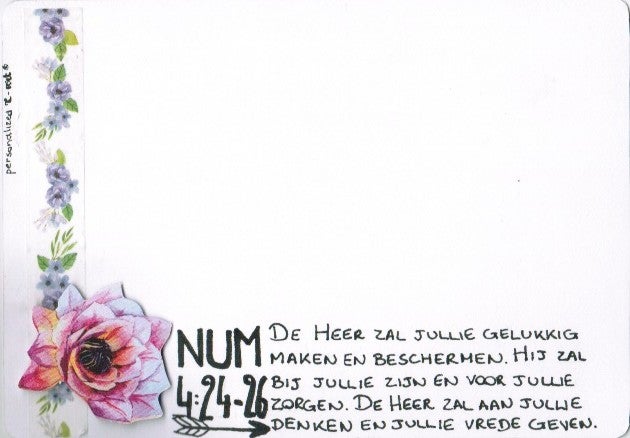 personalized
NUM
4:24-26
DE HEER ZAL JULLIE GELUKKIG
MAKEN EN BESCHERMEN. HIJ ZAL
BIJ JULLIE ZIJN EN VOOR JULLIE
ZORGEN. DE HEER ZAL AAN JULLIE
DENKEN EN JULLIE VREDE GEVEN.